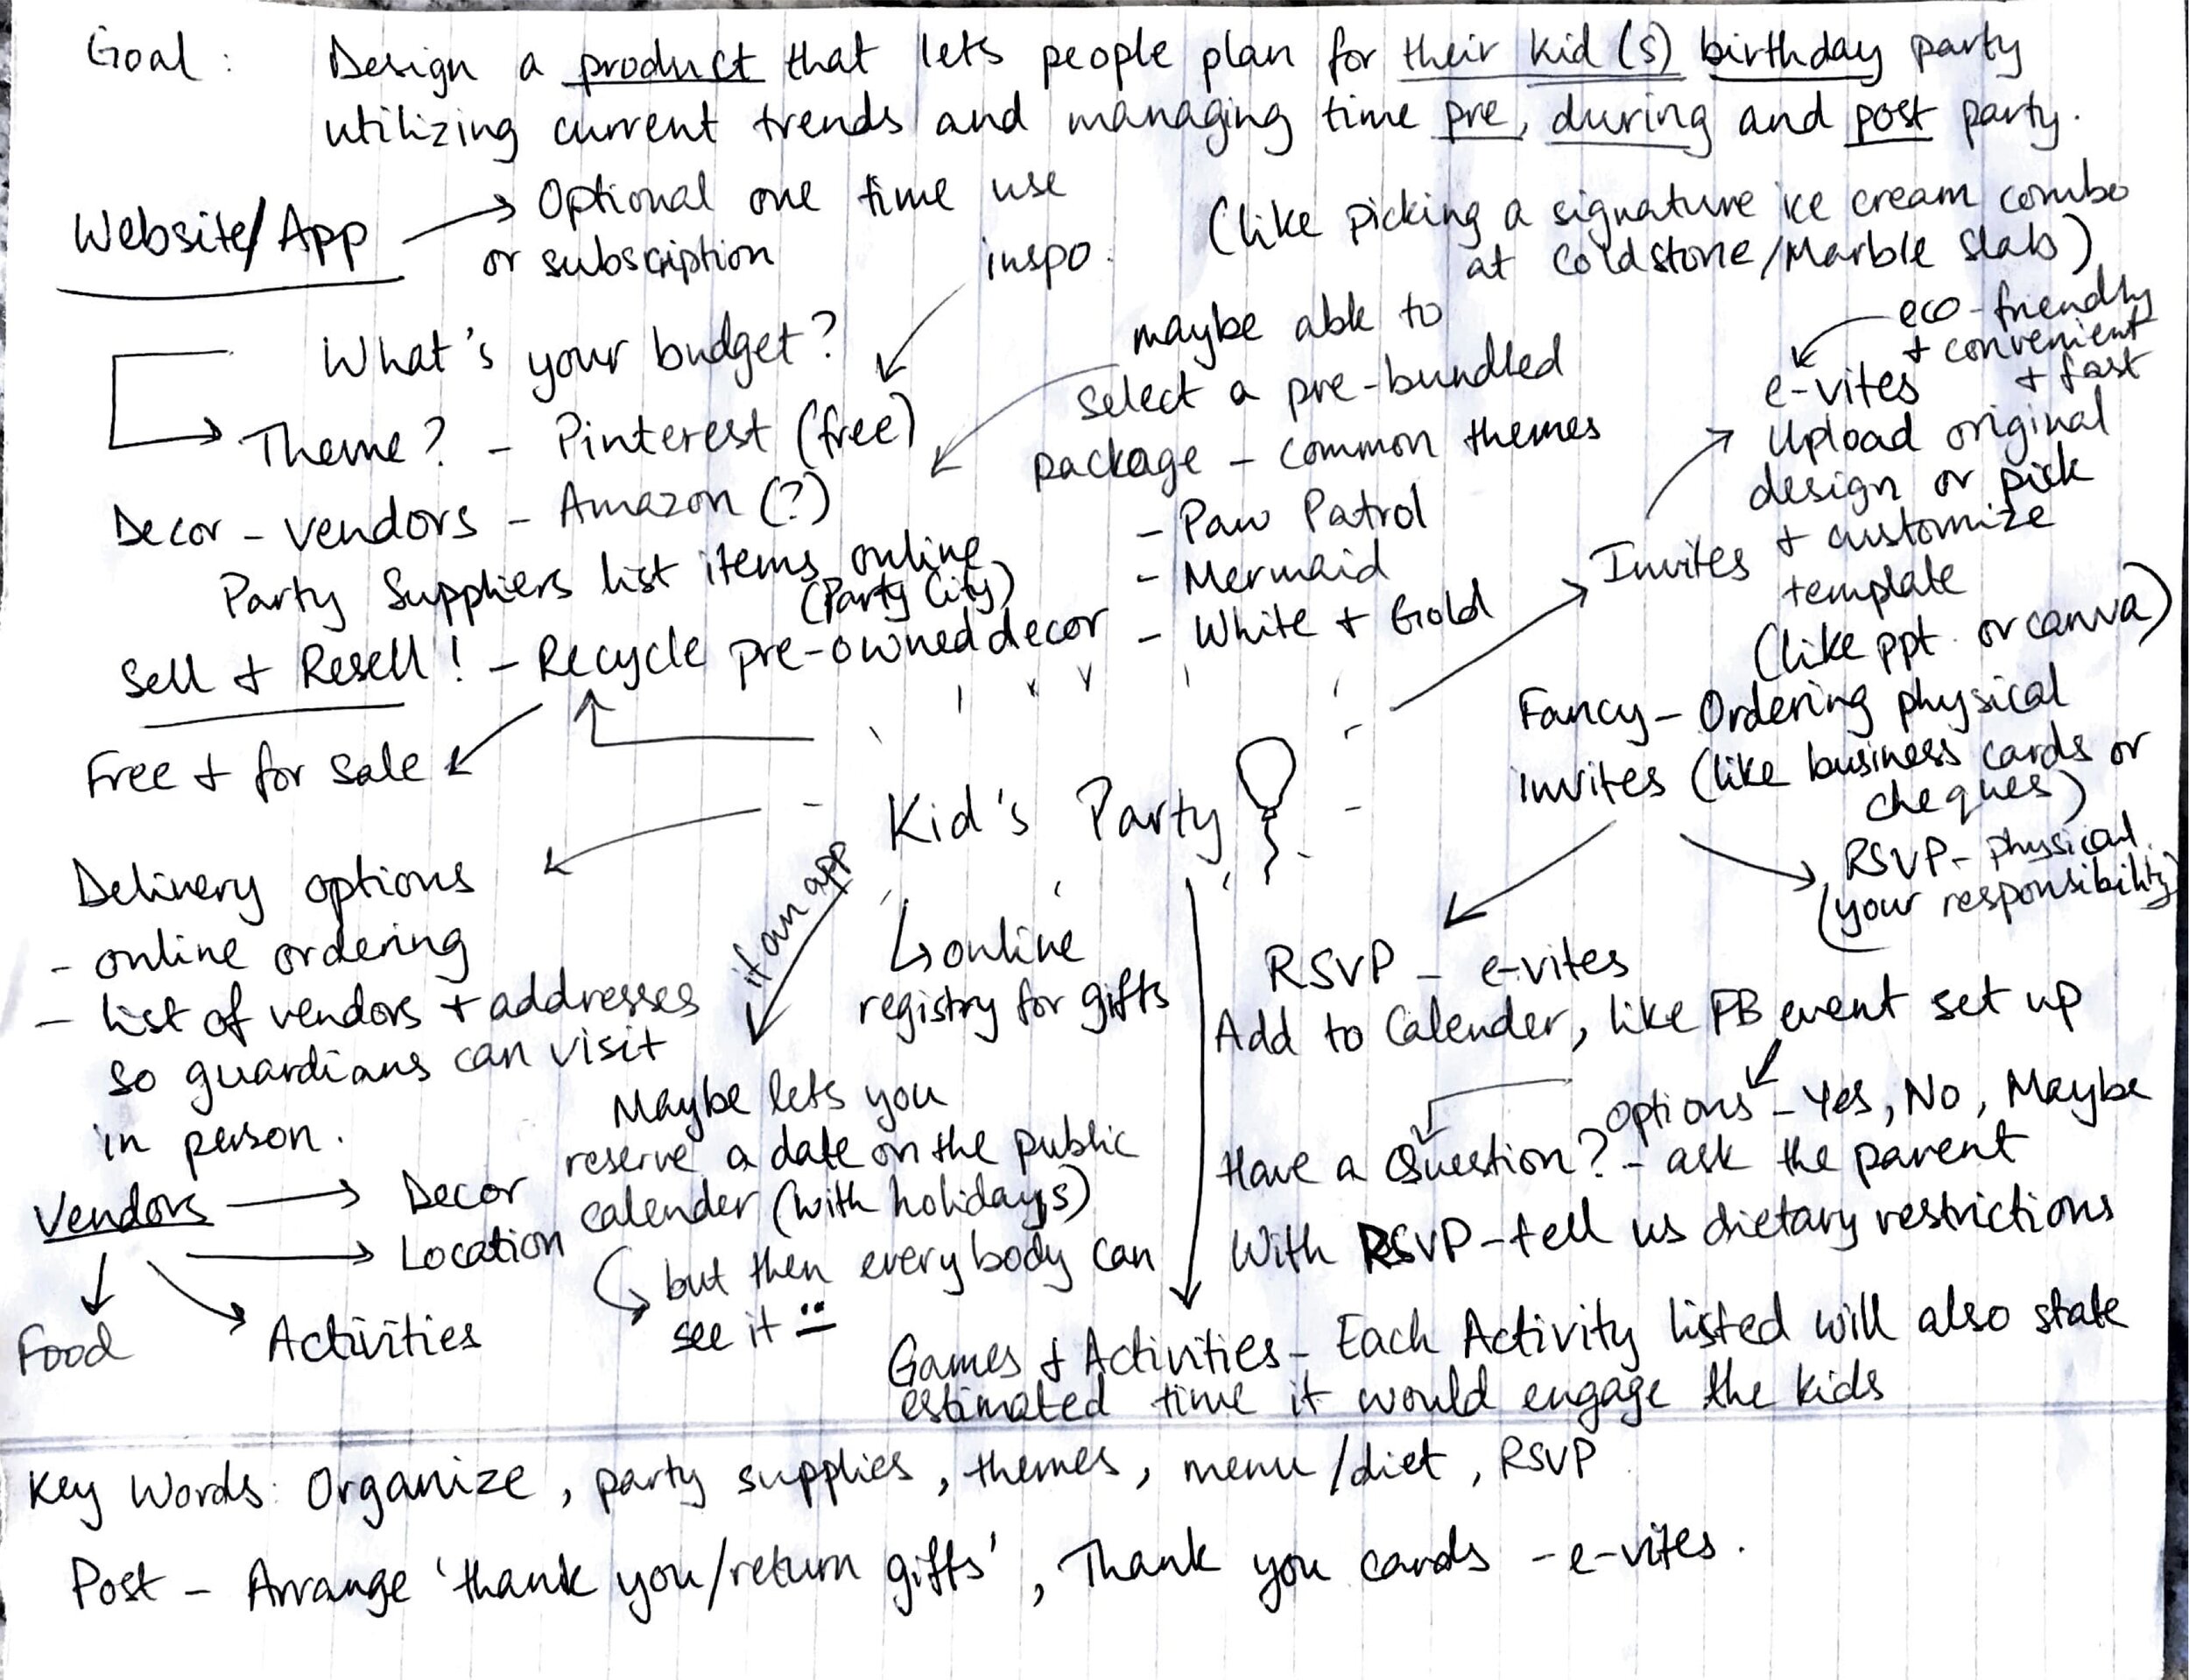 Goal: Design a product that lets people plan for their kid(s) birthday party
utilizing current trends and managing time pre, during and post party.
Website/App
Optional one time use
or subscription
inspo.
(like picking a signature ice cream combo
at Coldstone/Marble Slab)
What's your budget?
Theme? - Pinterest (free)
Decor - vendors - Amazon (?)
Party Suppliers list items online
(Party City)
Sell + Resell! - Recycle pre-owned decor
Free + for sale
maybe able to
select a pre-bundled
package - common themes
- Paw Patrol
- Mermaid
- White + Gold
eco-friendly
+ convenient
+ fast
e-vites
Upload original
design or pick
+ customize
template
(like ppt. or canva)
Invites
Fancy - Ordering physical
invites (like business cards or
cheques)
RSVP - physical.
(your responsibility)
Kid's Party
Delivery options
- online ordering
- list of vendors + addresses
so guardians can visit
in person.
if an app
online
registry for gifts
Maybe lets you
reserve a date on the public
calender (with holidays)
but then everybody can
see it
Vendors
Decor
Location
Food
Activities
RSVP - e-vites
Add to Calender, like FB event set up
options - Yes, No, Maybe
Have a Question? - ask the parent
With RSVP - tell us dietary restrictions
Games + Activities - Each Activity listed will also state
estimated time it would engage the kids
Key Words: Organize, party supplies, themes, menu/diet, RSVP
Post - Arrange 'thank you/return gifts', Thank you cards - e-vites.